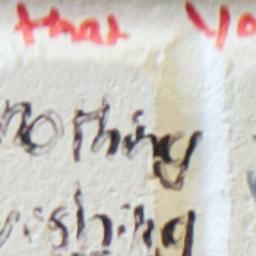 that yo
nothing
ishing